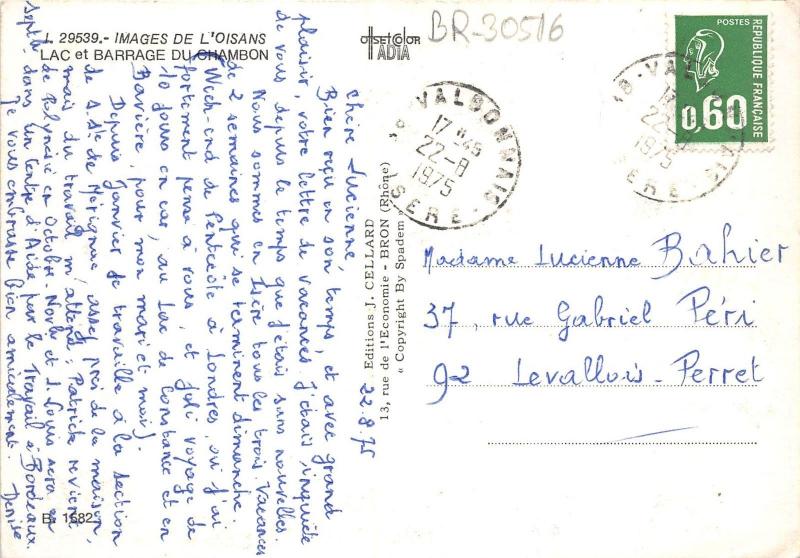 I. 29539.- IMAGES DE L'OISANS
LAC et BARRAGE DU CHAMBON
offsetcolor
IADIA
BR-30516
POSTES
REPUBLIQUE FRANÇAISE
0,60
VALBONNAIS
17H45
22-8
1975
ISERE
VAL
22-8
1975
ISERE
22.8.75
Chère Lucienne,
Bien reçu en son temps, et avec grand
plaisir, votre lettre de vacances. J'étais inquiète
de vous depuis le temps que j'étais sans nouvelles.
Nous sommes en Isère tous les trois. Vacances
de 2 semaines qui se terminent dimanche.
Week-end de Pentecôte à Londres, où j'ai
fortement pensé à vous, et joli voyage de
10 jours en car, au Lac de Constance et en
Bavière, pour mon mari et moi.
Depuis Janvier je travaille à la section
de S.S. de Mérignac, assez près de la maison,
mais du travail m'attend ; Patrick revient
de Polynésie en Octobre-Novbre et J. Louis sera en
Septbre dans un Centre d'Aide par le Travail à Bordeaux.
Je vous embrasse bien amicalement. Denise
Editions J. CELLARD
13, rue de l'Economie - BRON (Rhône)
« Copyright By Spadem »
Madame Lucienne Bahier
37, rue Gabriel Péri
92 Levallois-Perret
B. 1682